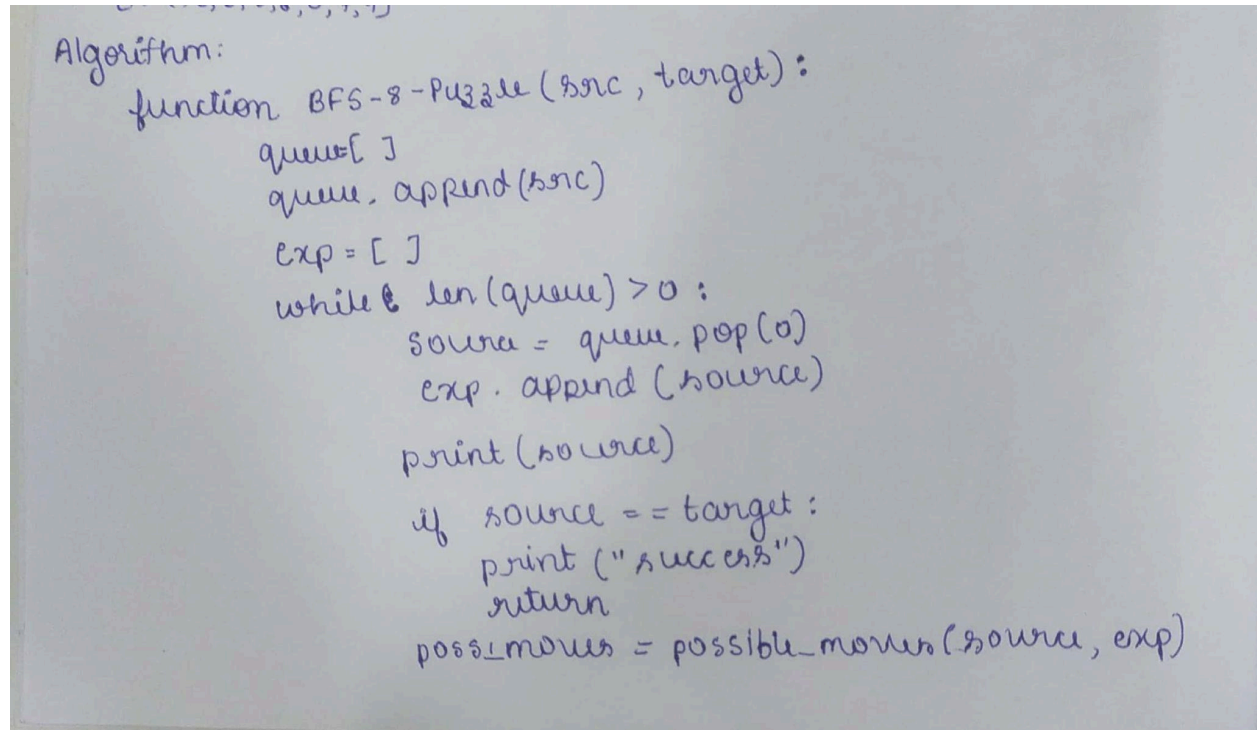 Algorithm:
function BFS-8-Puzzle (src, target):
queue=[ ]
queue. append(src)
exp = [ ]
while len (queue) > 0 :
source = queue. pop (0)
exp. append (source)
print (source)
if source == target :
print ("success")
return
poss_moves = possible_moves (source, exp)